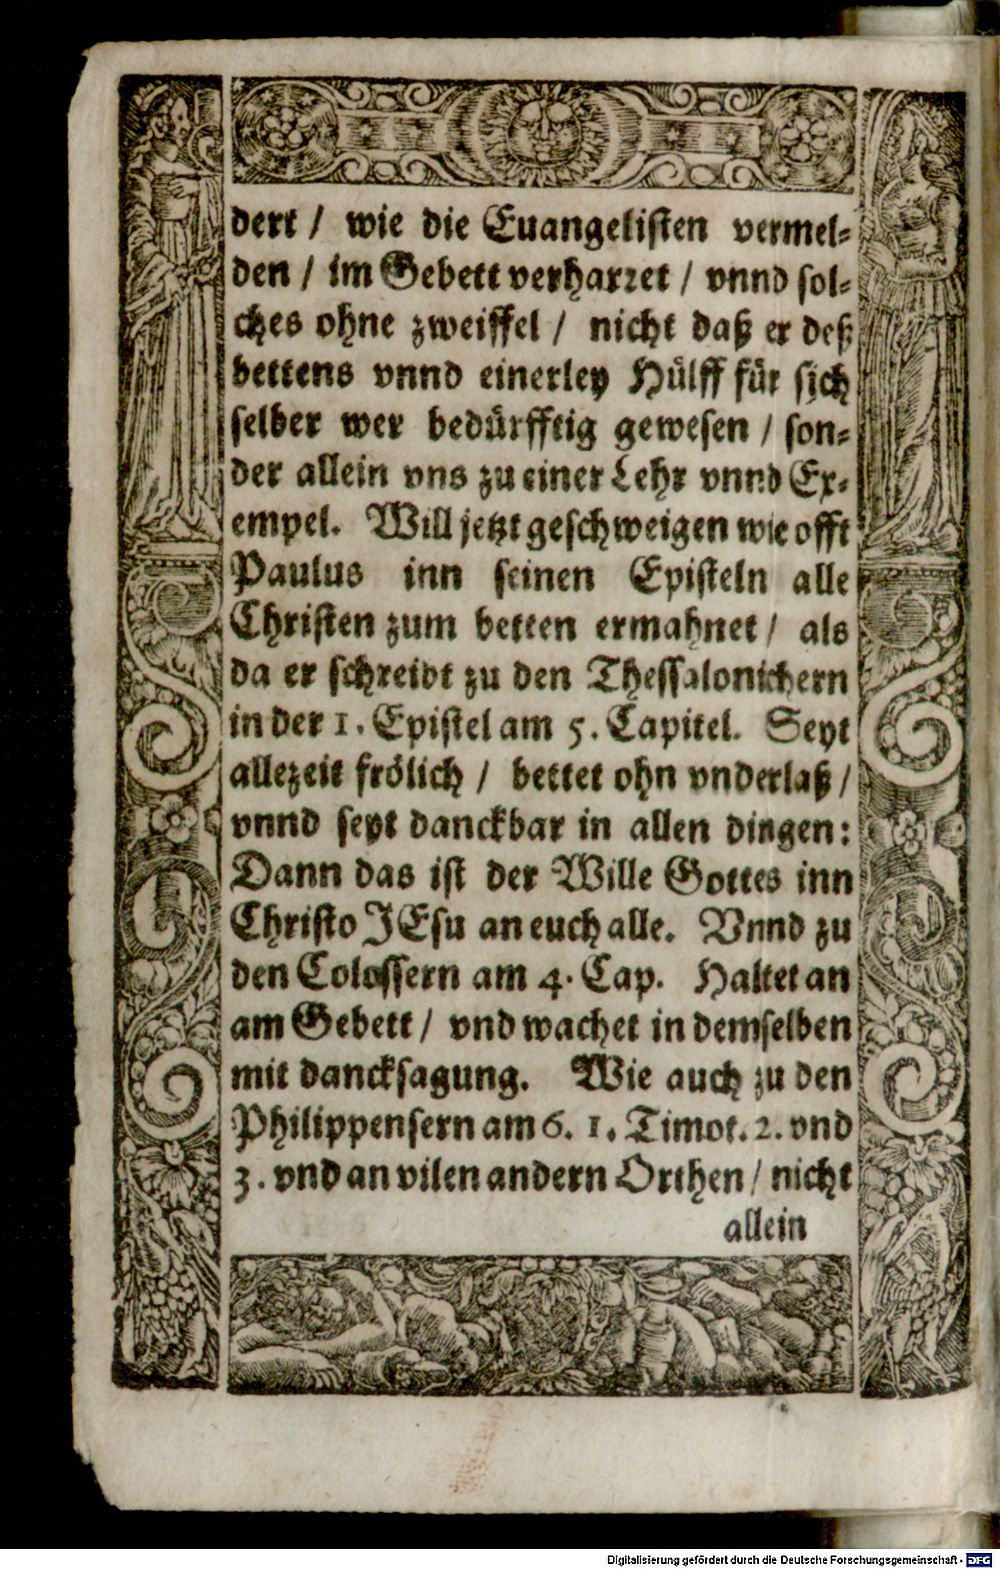 dert / wie die Euangelisten vermel-
den / im Gebett verharret / vnnd sol-
ches ohne zweiffel / nicht daß er deß
bettens vnnd einerley Hülff für sich
selber wer bedürfftig gewesen / son-
der allein vns zu einer Lehr vnnd Ex-
empel. Will jetzt geschweigen wie offt
Paulus inn seinen Episteln alle
Christen zum betten ermahnet / als
da er schreibt zu den Thessalonichern
in der 1. Epistel am 5. Capitel. Seyt
allezeit frölich / bettet ohn vnderlaß /
vnnd seyt danckbar in allen dingen:
Dann das ist der Wille Gottes inn
Christo JEsu an euch alle. Vnnd zu
den Colossern am 4. Cap. Haltet an
am Gebett / vnd wachet in demselben
mit dancksagung. Wie auch zu den
Philippensern am 6. 1. Timot. 2. vnd
3. vnd an vilen andern Orthen / nicht
allein
Digitalisierung gefördert durch die Deutsche Forschungsgemeinschaft - DFG